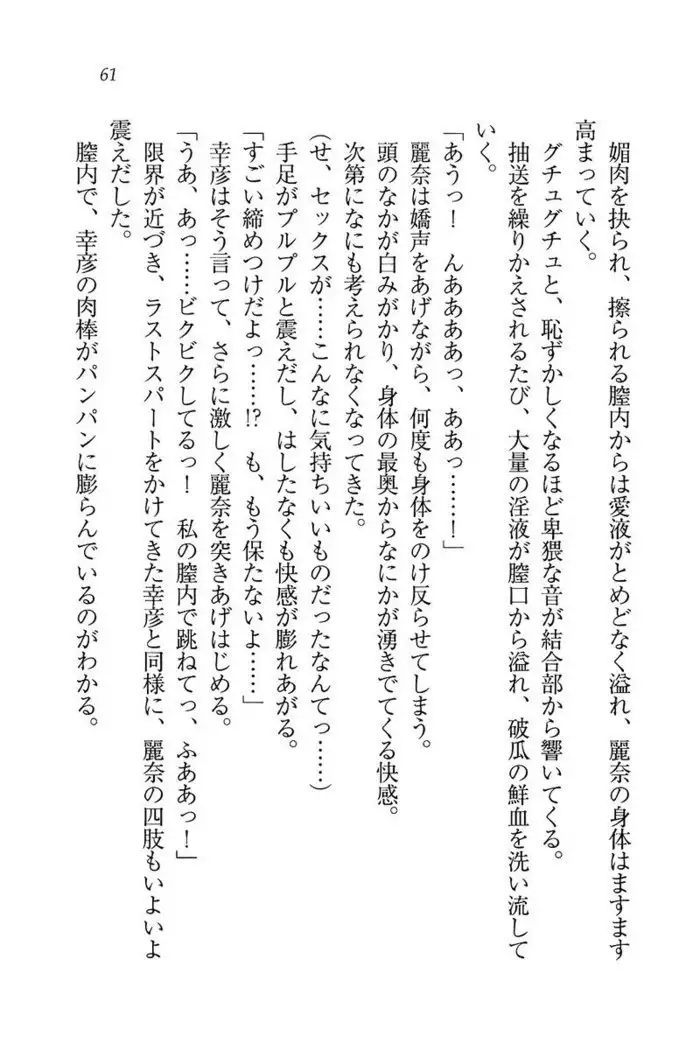 61
媚肉を抉られ、擦られる膣内からは愛液がとめどなく溢れ、麗奈の身体はますます
高まっていく。
グチュグチュと、恥ずかしくなるほど卑猥な音が結合部から響いてくる。
抽送を繰りかえされるたび、大量の淫液が膣口から溢れ、破瓜の鮮血を洗い流して
いく。
「あうっ！　んああああっ、ああっ……！」
麗奈は嬌声をあげながら、何度も身体をのけ反らせてしまう。
頭のなかが白みがかり、身体の最奥からなにかが湧きでてくる快感。
次第になにも考えられなくなってきた。
（せ、セックスが……こんなに気持ちいいものだったなんてっ……）
手足がプルプルと震えだし、はしたなくも快感が膨れあがる。
「すごい締めつけだよっ……!?　も、もう保たないよ……」
幸彦はそう言って、さらに激しく麗奈を突きあげはじめる。
「うあ、あっ……ビクビクしてるっ！　私の膣内で跳ねてっ、ふああっ！」
限界が近づき、ラストスパートをかけてきた幸彦と同様に、麗奈の四肢もいよいよ
震えだした。
膣内で、幸彦の肉棒がパンパンに膨らんでいるのがわかる。